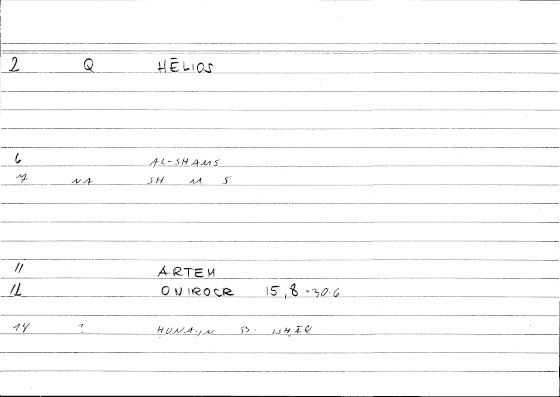 2 Q HĒLIOS
6 AL-SHAMS
7 NA SH M S
11 ARTEM
12 ONIROCR 15,8-30.6
14 ? ḤUNAYN B. ISḤĀQ